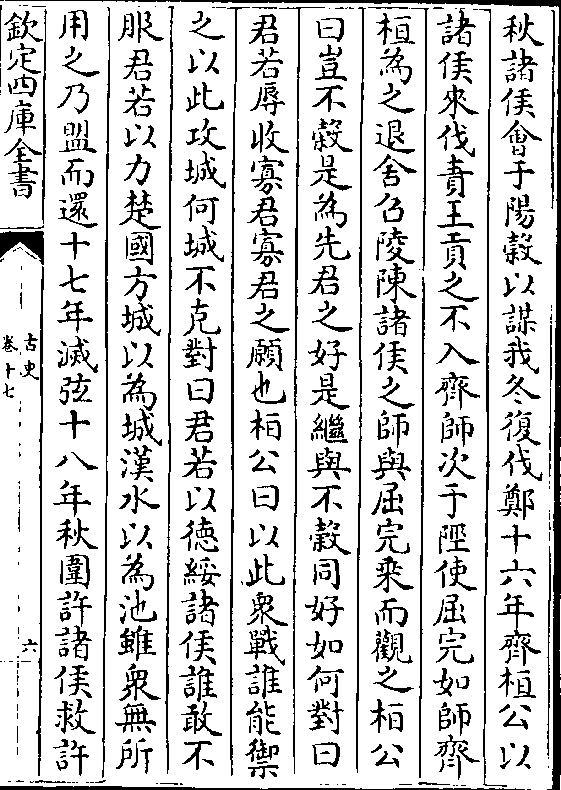 秋諸侯會于陽榖以謀我冬復伐鄭十六年齊桓公以
諸侯來伐責王貢之不入齊師次于陘使屈完如師齊
桓為之退舍召陵陳諸侯之師與屈完乗而觀之桓公
曰豈不榖是為先君之好是繼與不榖同好如何對曰
君若辱收寡君寡君之願也桓公曰以此衆戰誰能禦
之以此攻城何城不克對曰君若以徳綏諸侯誰敢不
服君若以力楚國方城以為城漢水以為池雖衆無所
用之乃盟而還十七年滅弦十八年秋圍許諸侯救許
欽定四庫全書
古史
卷十七
六